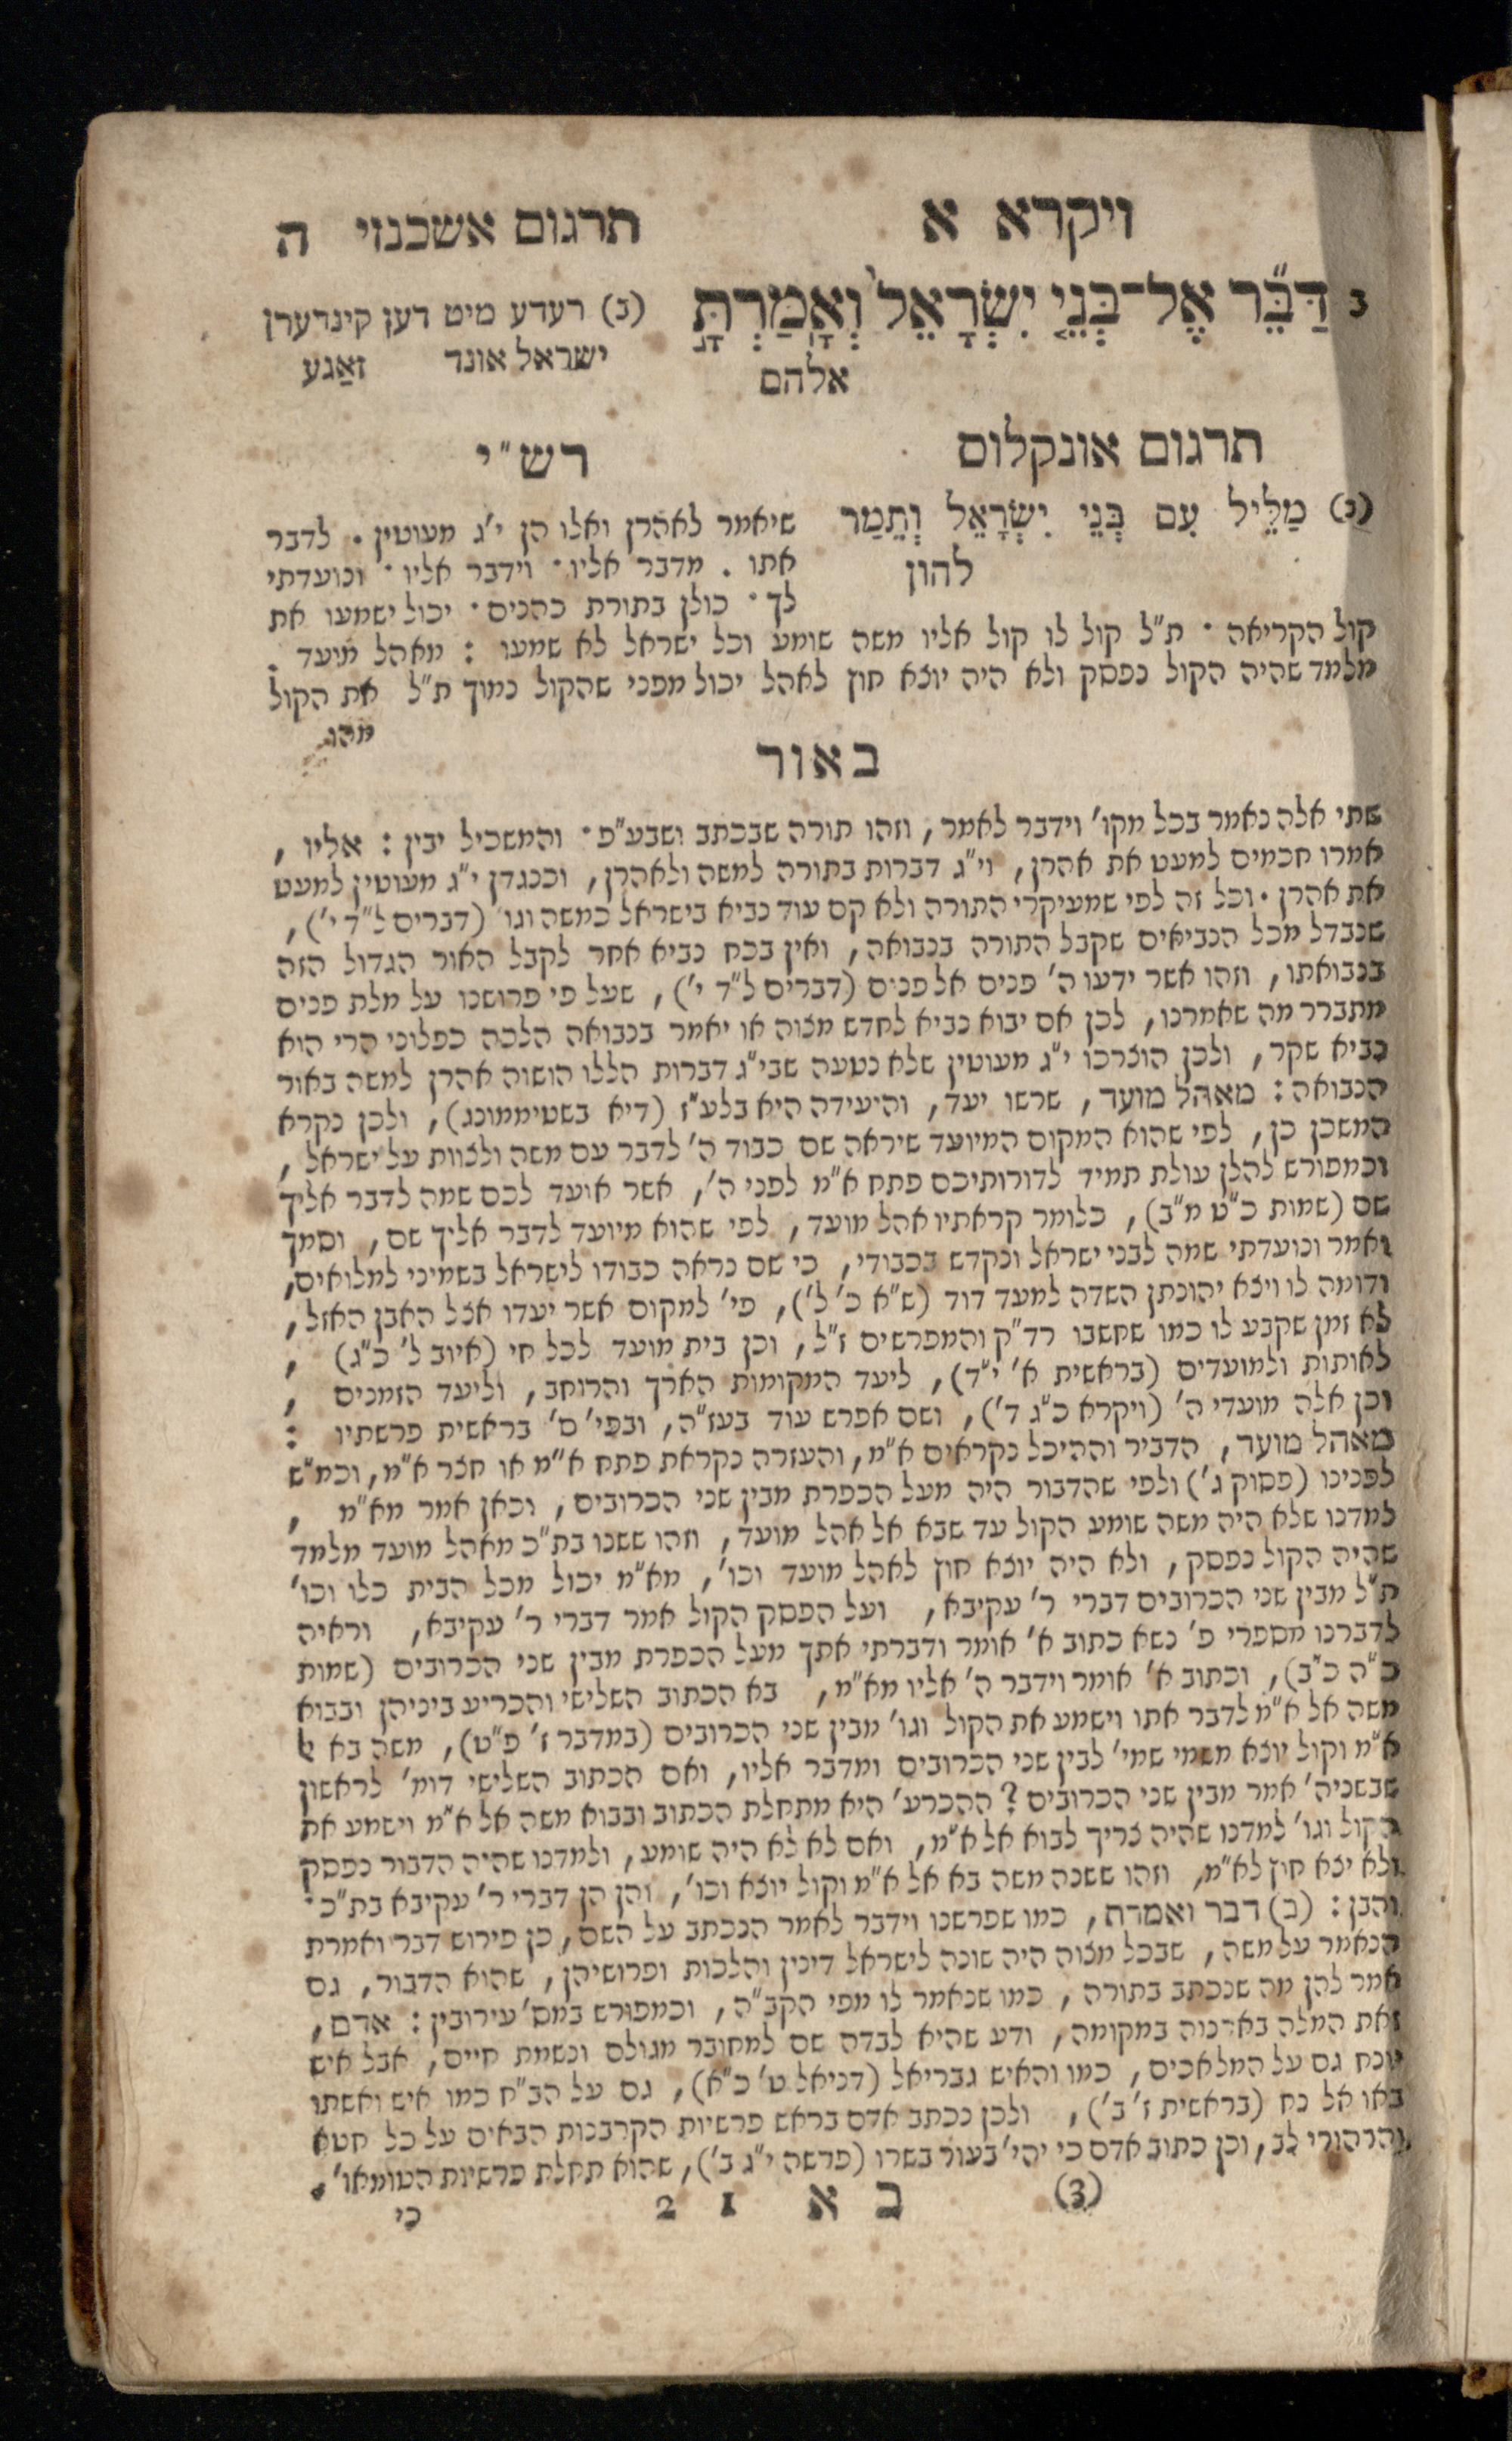 ויקרא א
תרגום אשכנזי ה
ב דַּבֵּ֞ר אֶל־בְּנֵ֤י יִשְׂרָאֵל֙ וְאָֽמַרְתָּ֣
אלהם
(ב) רעדע מיט דען קינדערן
ישראל אונד זאַגע
תרגום אונקלוס
(ב) מַלֵּיל עִם בְּנֵי יִשְׂרָאֵל וְתֵמַר
להון
רש"י
שיאמר לאהרן ואלו הן י'ג מעוטין. לדבר
אתו. מדבר אליו. וידבר אליו. ונועדתי
לך. כולן בתורת כהנים. יכול ישמעו את
קול הקריאה. ת"ל קול לו קול אליו משה שומע וכל ישראל לא שמעו: מאהל מועד.
מלמד שהיה הקול נפסק ולא היה יוצא חוץ לאהל יכול מפני שהקול נמוך ת"ל את הקול
מהו
באור
שתי אלה נאמר בכל מקו' וידבר לאמר, וזהו תורה שבכתב ושבע"פ. והמשכיל יבין: אליו,
אמרו חכמים למעט את אהרן, וי"ג דברות בתורה למשה ולאהרן, וכנגדן י"ג מעוטין למעט
את אהרן. וכל זה לפי שמעיקרי התורה ולא קם עוד נביא בישראל כמשה וגו' (דברים ל"ד י'),
שנבדל מכל הנביאים שקבל התורה בנבואה, ואין בכח נביא אחר לקבל האור הגדול הזה
בנבואתו, וזהו אשר ידעו ה' פנים אל פנים (דברים ל"ד י'), שעל פי פרושנו על מלת פנים
מתברר מה שאמרנו, לכן אם יבוא נביא לחדש מצוה או יאמר בנבואה הלכה כפלוני הרי הוא
נביא שקר, ולכן הוצרכו י"ג מעוטין שלא נטעה שבי"ג דברות הללו הושוה אהרן למשה באור
הנבואה: מאהל מועד, שרשו יעד, והיעידה היא בלע"ז (דיא בשטיממונג), ולכן נקרא
המשכן כן, לפי שהוא המקום המיועד שיראה שם כבוד ה' לדבר עם משה ולצוות על ישראל,
וכמפורש להלן עולת תמיד לדורותיכם פתח א"מ לפני ה', אשר אועד לכם שמה לדבר אליך
שם (שמות כ"ט מ"ב), כלומר קראתיו אהל מועד, לפי שהוא מיועד לדבר אליך שם, וסמך
ואמר ונועדתי שמה לבני ישראל ונקדש בכבודי, כי שם נראה כבודו לישראל בשמיני למלואים,
ודומה לו ויצא יהונתן השדה למעד דוד (ש"א כ' ל'), פי' למקום אשר יעדו אצל האבן האזל,
לא זמן שקבע לו כמו שחשבו רד"ק והמפרשים ז"ל, וכן בית מועד לכל חי (איוב ל' כ"ג),
לאותות ולמועדים (בראשית א' י"ד), ליעד המקומות הארך והרוחב, וליעד הזמנים,
וכן אלה מועדי ה' (ויקרא כ"ג ד'), ושם אפרש עוד בעז"ה, ובפי' ס' בראשית פרשתיו:
מאהל מועד, הדביר וההיכל נקראים א"מ, והעזרה נקראת פתח א"מ או חצר א"מ, וכמ"ש
לפנינו (פסוק ג') ולפי שהדבור היה מעל הכפרת מבין שני הכרובים, וכאן אמר מא"מ,
למדנו שלא היה משה שומע הקול עד שבא אל אהל מועד, וזהו ששנו בת"כ מאהל מועד מלמד
שהיה הקול נפסק, ולא היה יוצא חוץ לאהל מועד וכו', מא"מ יכול מכל הבית כלו וכו'
ת"ל מבין שני הכרובים דברי ר' עקיבא, ועל הפסק הקול אמר דברי ר' עקיבא, וראיה
לדברנו מספרי פ' נשא כתוב א' אומר ודברתי אתך מעל הכפרת מבין שני הכרובים (שמות
כ"ה כ"ב), וכתוב א' אומר וידבר ה' אליו מא"מ, בא הכתוב השלישי והכריע ביניהן ובבוא
משה אל א"מ לדבר אתו וישמע את הקול וגו' מבין שני הכרובים (במדבר ז' פ"ט), משה בא אל
א"מ וקול יוצא משמי שמי' לבין שני הכרובים ומדבר אליו, ואם הכתוב השלישי דומ' לראשון
שבשניה' אמר מבין שני הכרובים? ההכרע' היא מתחלת הכתוב ובבוא משה אל א"מ וישמע את
הקול וגו' למדנו שהיה צריך לבוא אל א"מ, ואם לא לא היה שומע, ולמדנו שהיה הדבור נפסק
ולא יצא חוץ לא"מ, וזהו ששנה משה בא אל א"מ וקול יוצא וכו', והן הן דברי ר' עקיבא בת"כ.
והבן: (ב) דבר ואמרת, כמו שפרשנו וידבר לאמר הנכתב על השם, כן פירוש דבר ואמרת
הנאמר על משה, שבכל מצוה היה שונה לישראל דינין והלכות ופרושיהן, שהוא הדבור, גם
אמר להן מה שנכתב בתורה, כמו שנאמר לו מפי הקב"ה, וכמפורש במס' עירובין: אדם,
זאת המלה בארנוה במקומה, ודע שהיא לבדה שם למחובר מגולם ונשמת חיים, אבל איש
מונח גם על המלאכים, כמו והאיש גבריאל (דניאל ט' כ"א), גם על הב"ח כמו איש ואשתו
באו אל נח (בראשית ז' ב'), ולכן נכתב אדם בראש פרשיות הקרבנות הבאים על כל חטא
והרהורי לב, וכן כתוב אדם כי יהי' בעור בשרו (פרשה י"ג ב'), שהוא תחלת פרשיות הטומאו'.
(3) ב א 1 2 כי